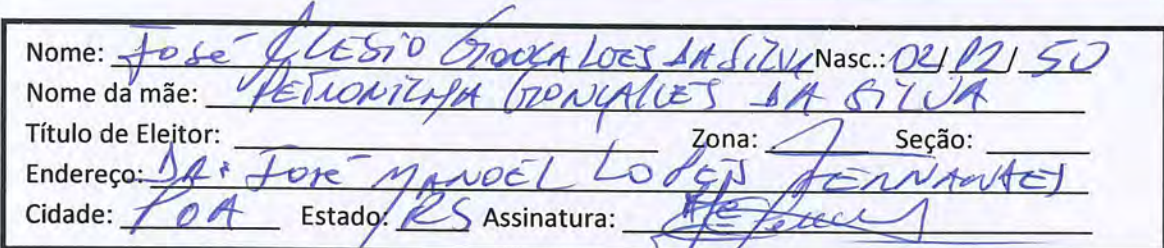 Nome: José Clesio Gonçalves da Silva Nasc.: 02/12/50
Nome da mãe: PETRONILHA GONÇALVES DA SILVA
Título de Eleitor: Zona: Seção:
Endereço: DR. José MANOEL LOPES FERNANTES
Cidade: POA Estado: RS Assinatura: